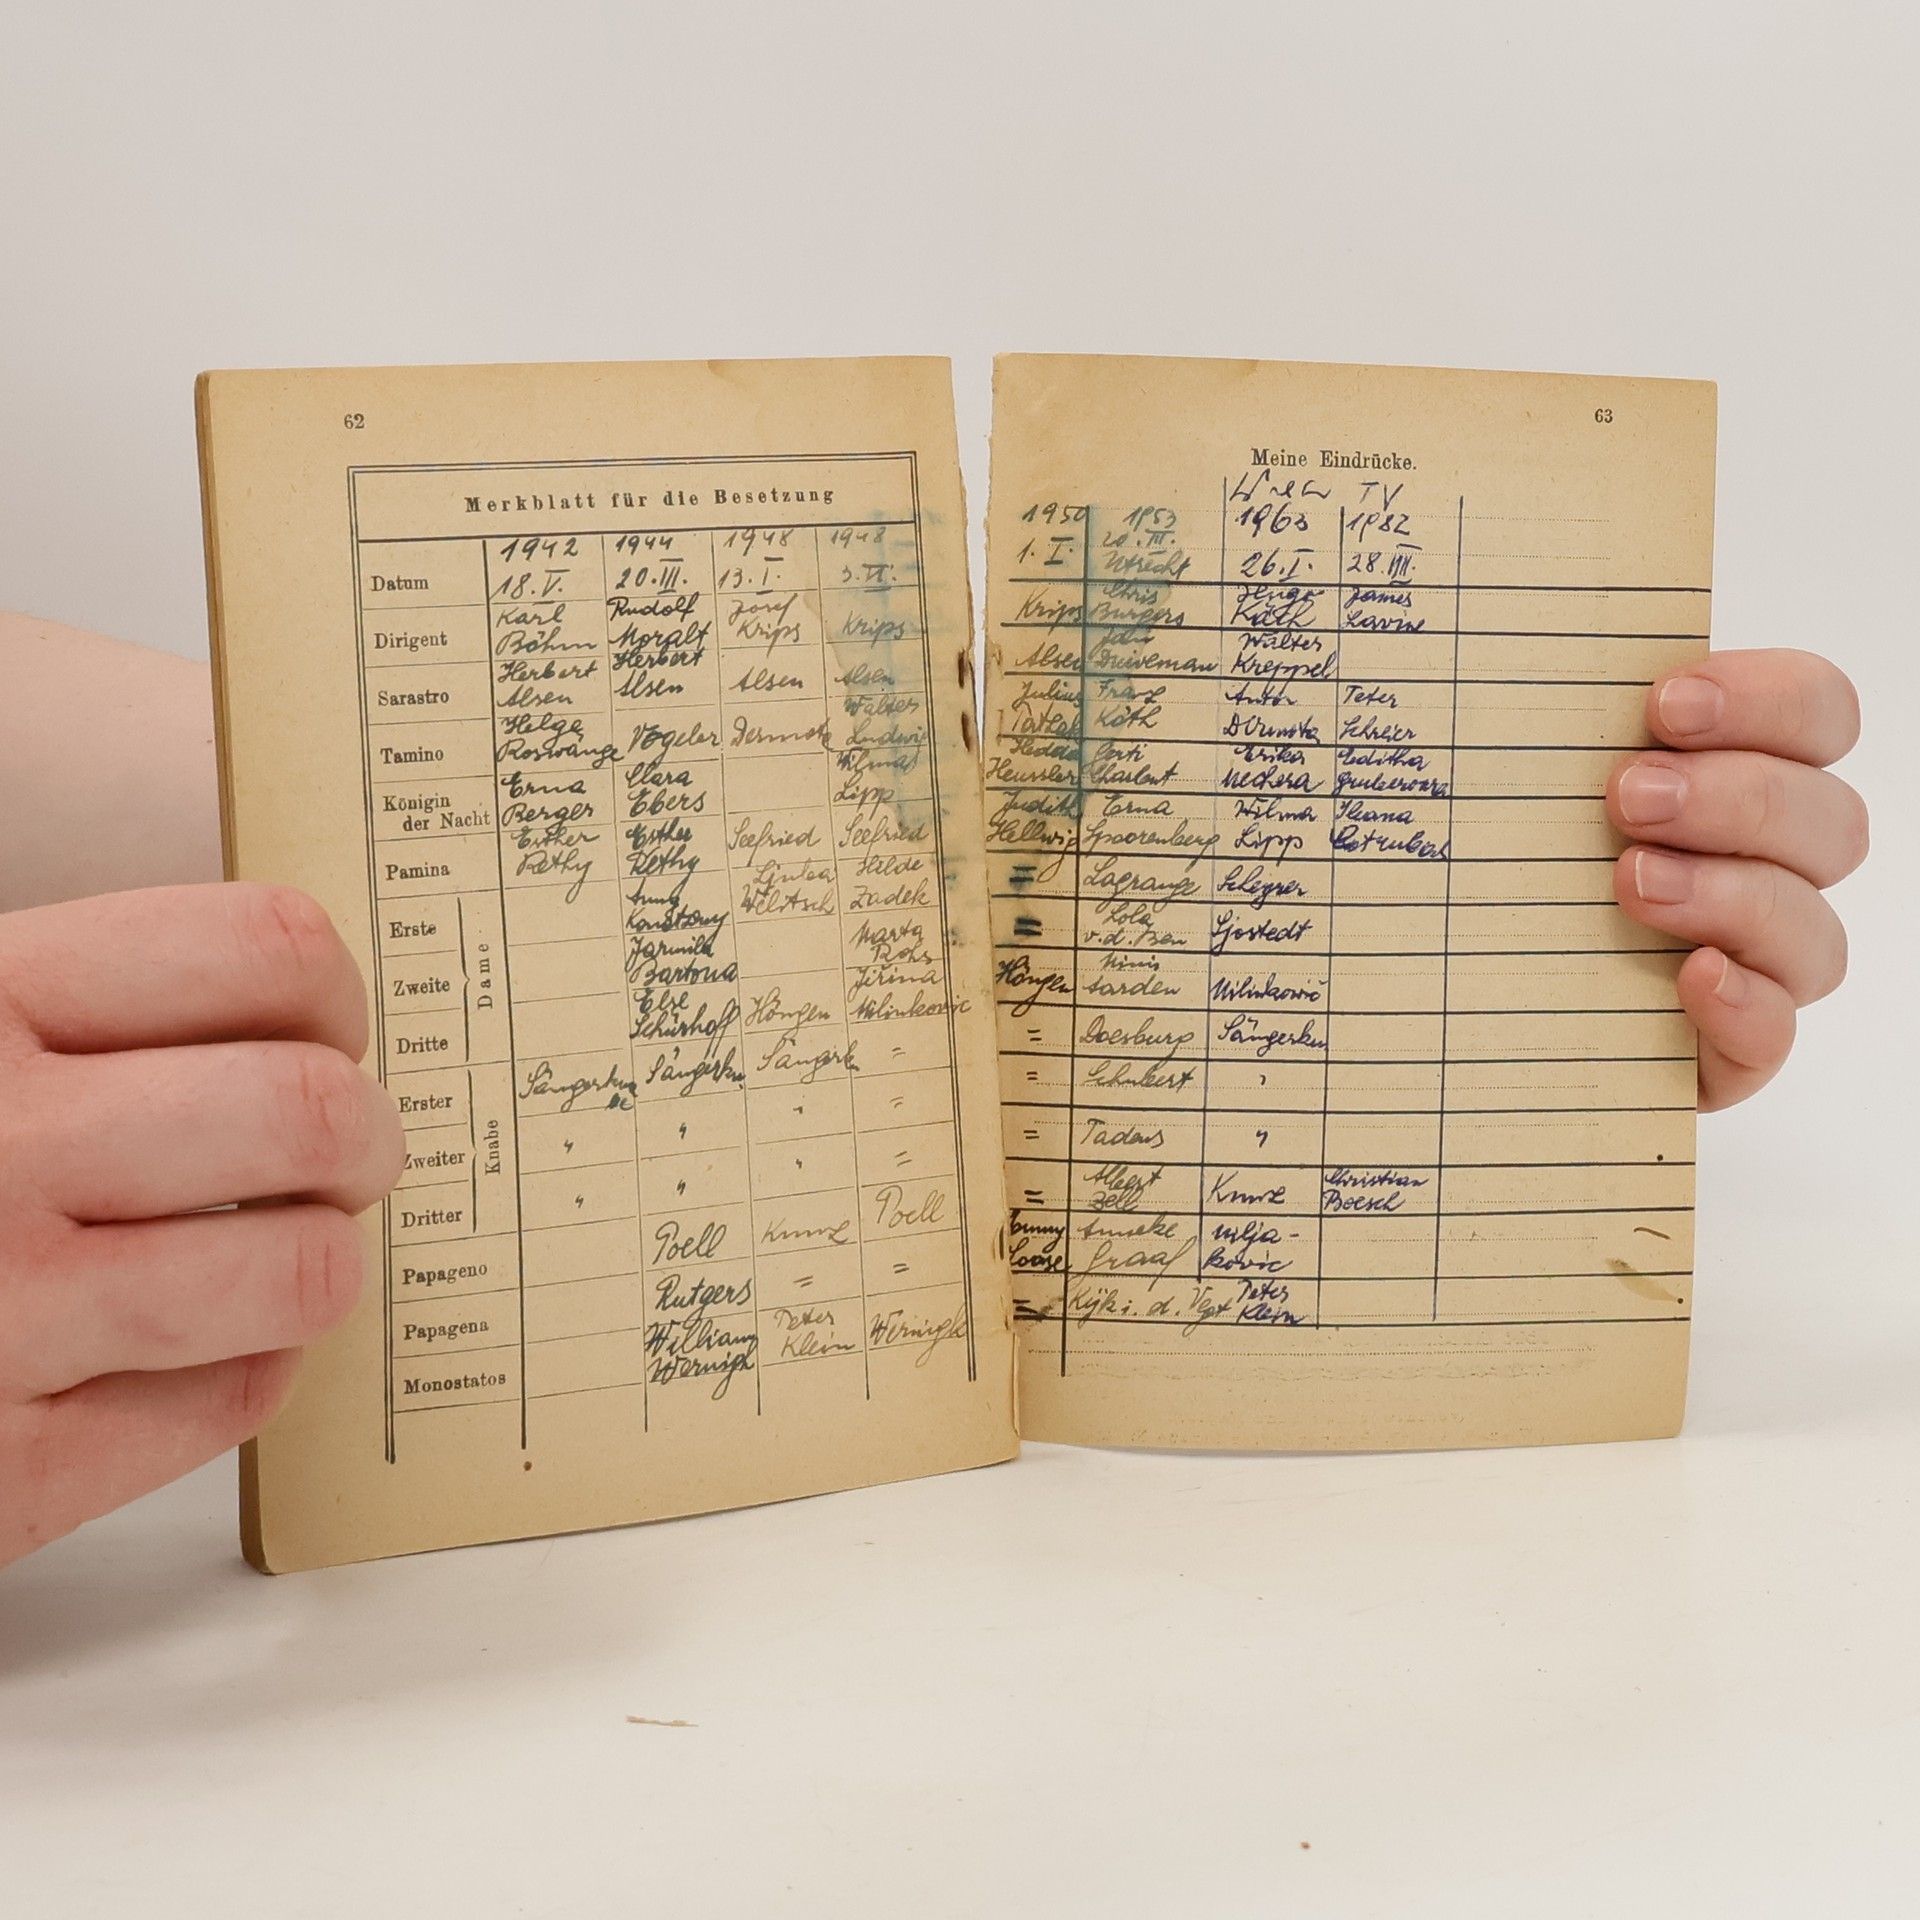 62
Merkblatt für die Besetzung
1942 1944 1948 1948
Datum 18.V. 20.III. 13.I. 3.VI.
Karl Rudolf Josef
Dirigent Böhm Moralt Krips Krips
Herbert Herbert
Sarastro Alsen Alsen Alsen Alsen
Helge Walter
Tamino Roswänge Vogeler Dermota Ludwig
Erna Clara Wilma
Königin
der Nacht Berger Ebers Lipp
Esther Esther Seefried Seefried
Pamina Rethy Rethy
Ljuba Hilde
Erste Konetzny Welitsch Zadek
Dame
Jarmila Marta
Zweite Bartona Rohs
Else Jiřina
Dritte Schürhoff Höngen Milinkovic
Erster Sängerkn Sängerkn. Sängerk =
Knabe
Zweiter " " " =
Dritter " " " =
Papageno Poell Kunz Poell
Papagena Rutgers = =
William Peter
Monostatos Wernigk Klein Wernigk
63
Meine Eindrücke.
Wien TV
1950 1953 1963 1982
1.I. 20.III. 26.I. 28.VIII.
Utrecht
Chris Hugo James
Krips Burgers Käth Lavine
Jan Walter
Alsen Kreppel
Julius Franz Anton Peter
Patzak Köth Dermota Schreier
Hedda Gerti Erika Editha
Heussler Charlent Mechera Gruberowa
Judith Erna Wilma Ileana
Hellwig Spoorenberg Lipp Cotrubas
= Lagrange Scheyrer
Lola
= v.d. Ben Sjostedt
Mimi
Höngen Aarden Milinkowič
= Doesburg Sängerkn.
= Schubert "
= Tadeus "
Albert Christian
= Zell Kunz Boesch
Emmy Anneke Milja-
Loose Graaf kovic
= Kijk i. d. Vegt Peter
Klein